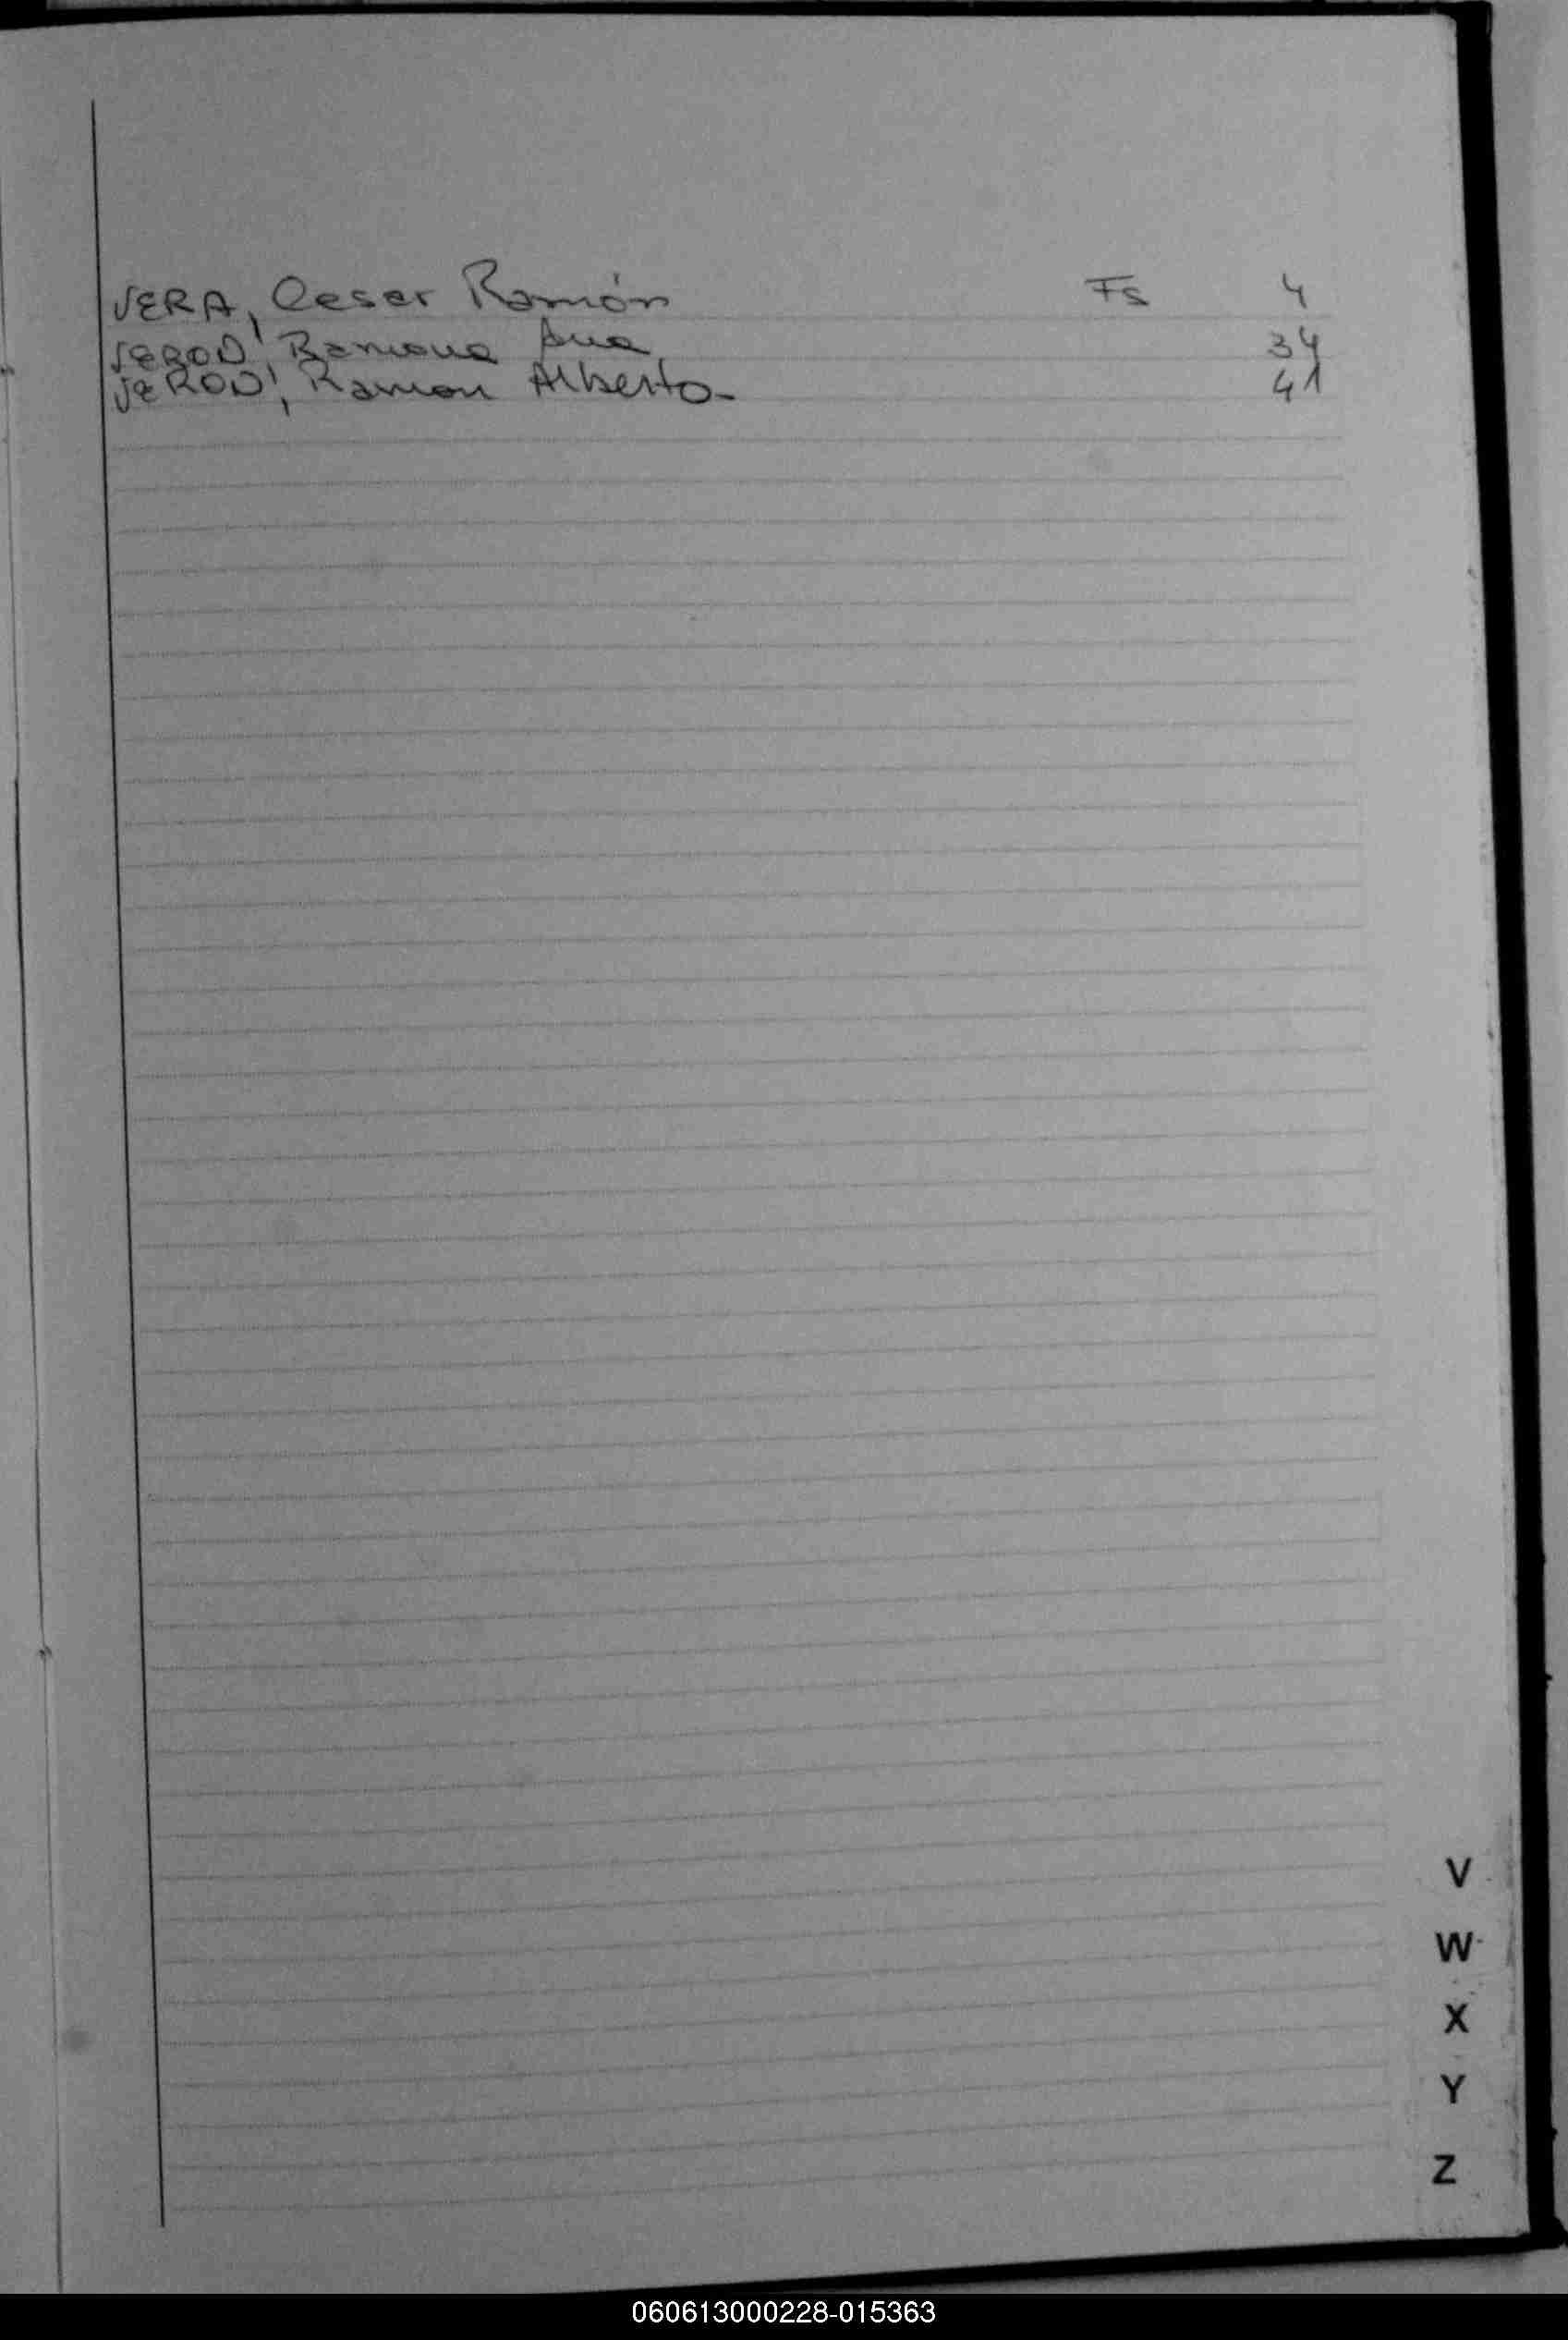 VERA, Cesar Ramón Fs 4
VEROD', Ramona Ana 34
VEROD', Ramon Alberto- 41
V
W
X
Y
Z
060613000228-015363